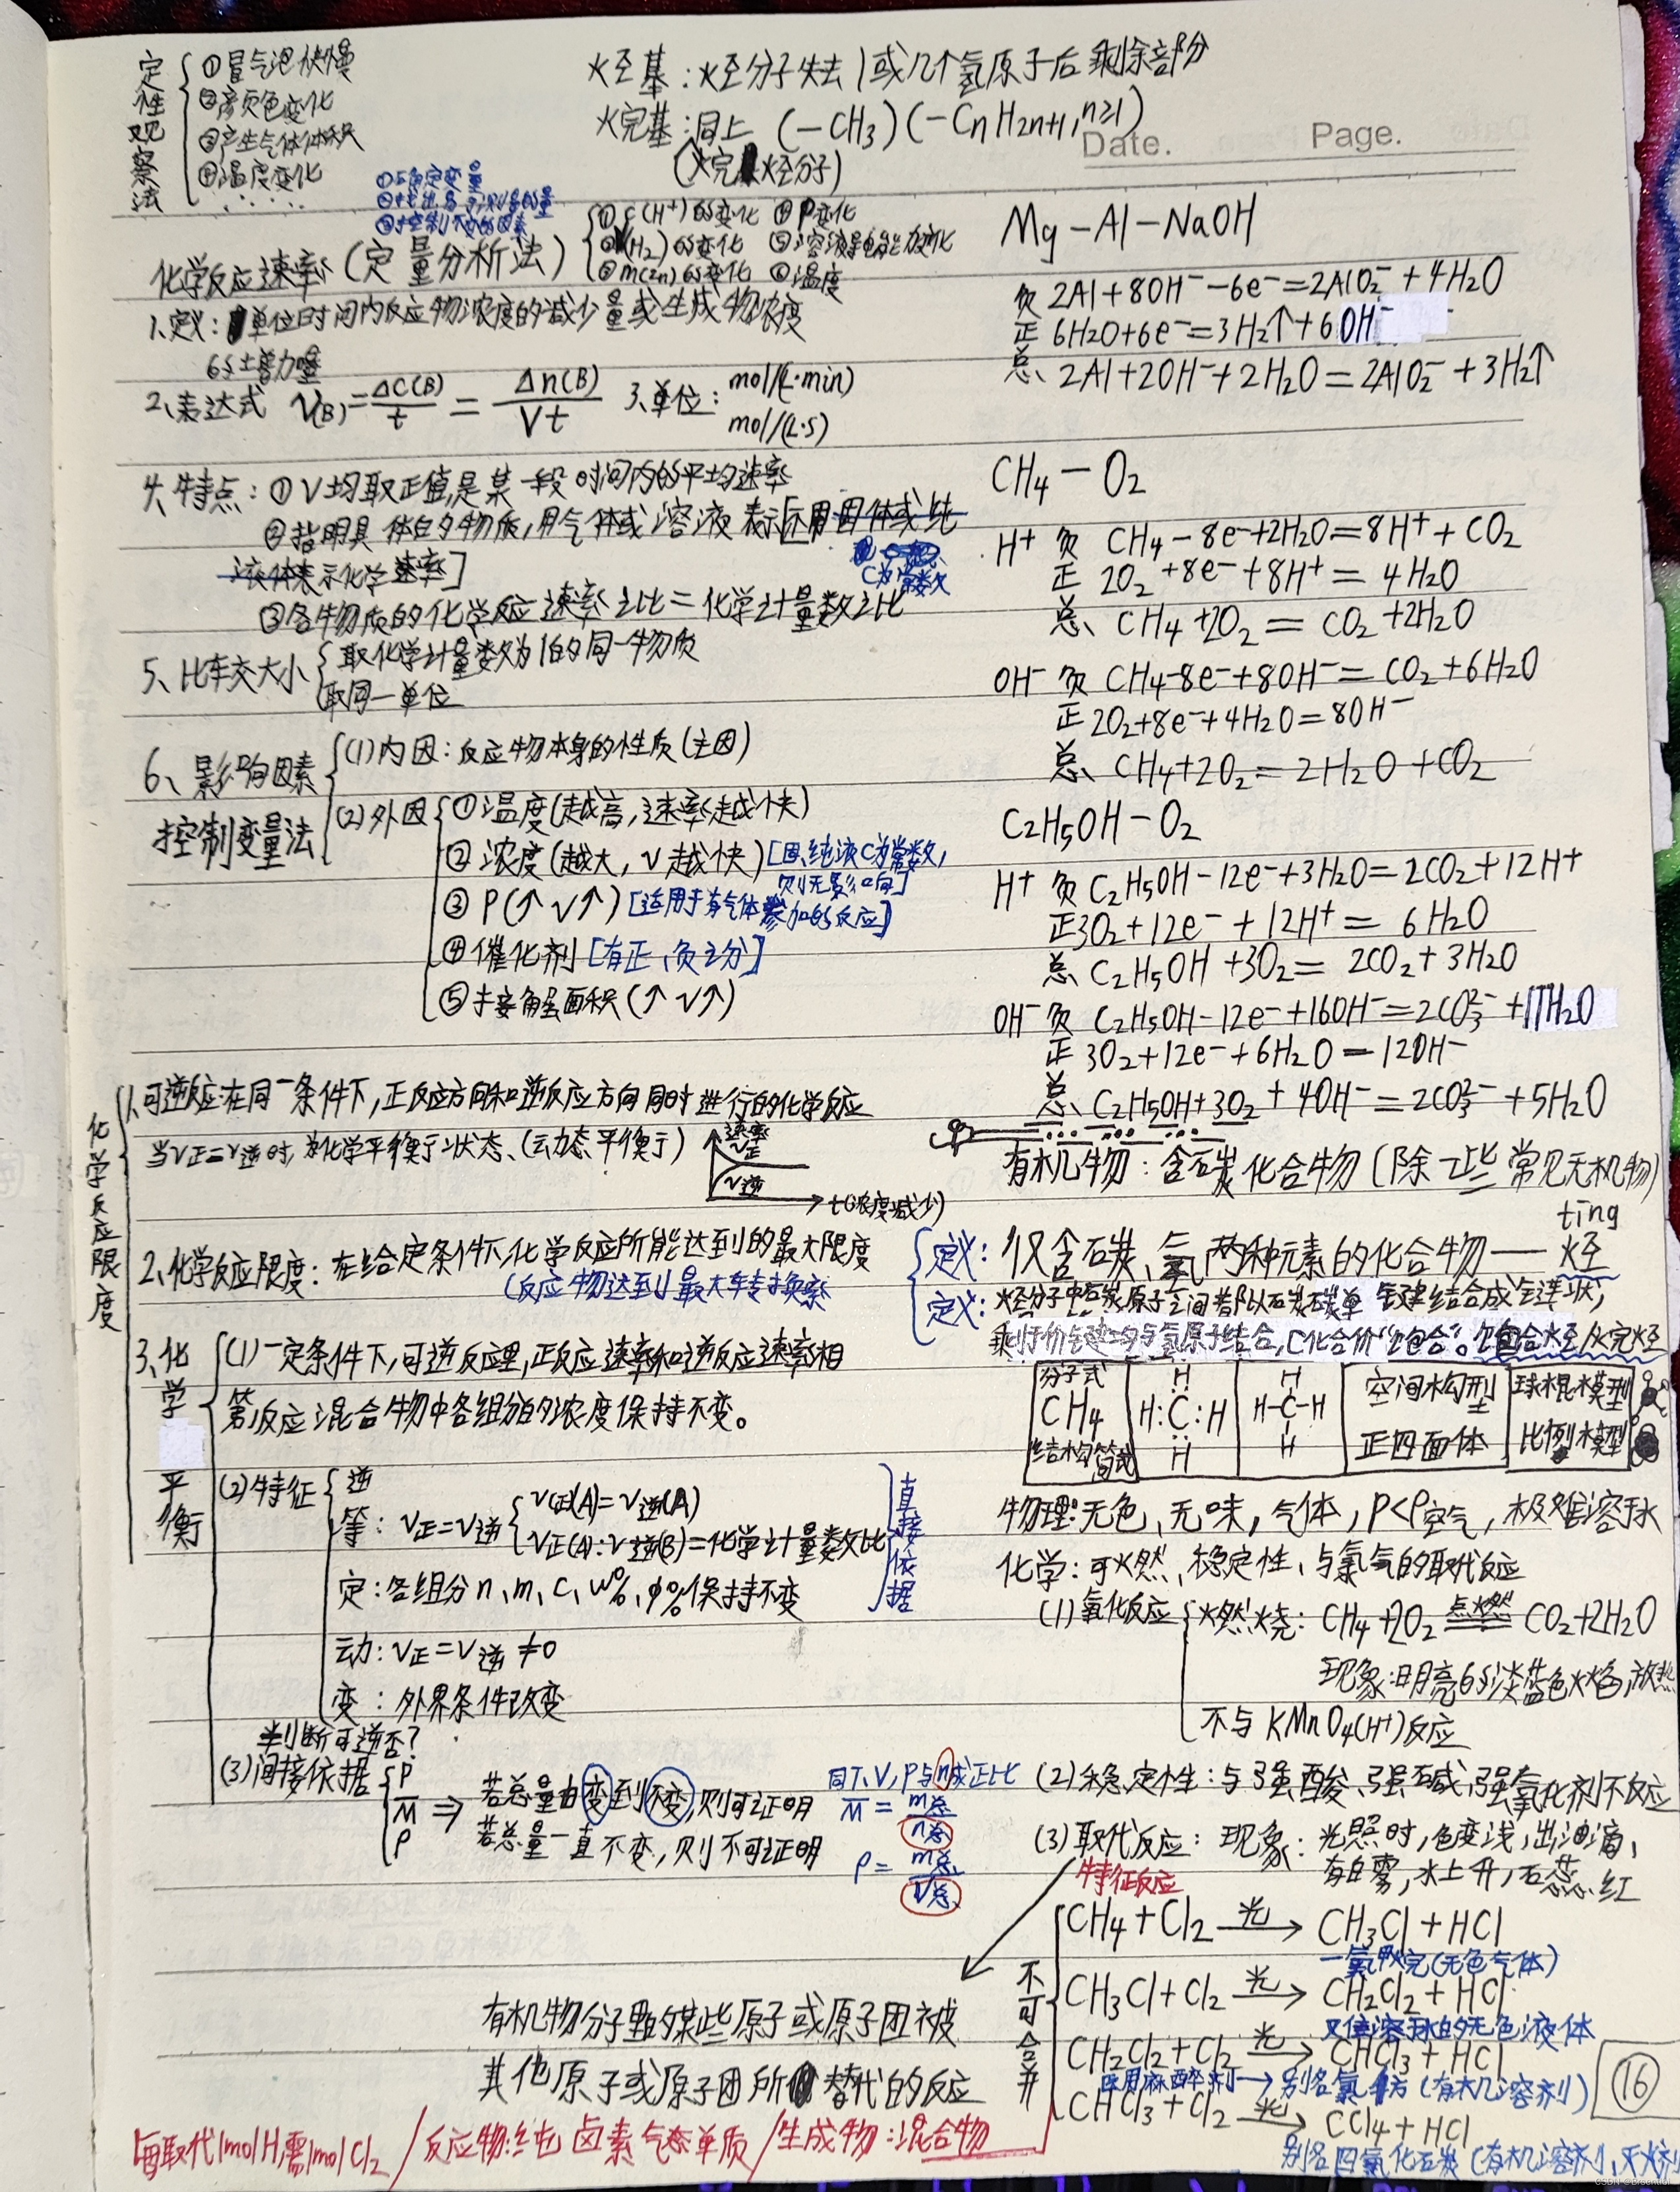 定性观察法
①冒气泡快慢
②颜色变化
③产生气体体积
④温度变化
......
烃基：烃分子失去1或几个氢原子后剩余部分
烷基：同上 (-CH3)(-CnH2n+1,n≥1)
(烷烃分子)
Date. Page.
①c(H+)的变化 ④P变化
②V(H2)的变化 ⑤溶液导电能力变化
③m(Zn)的变化 ⑥温度
化学反应速率(定量分析法)
1.定义：单位时间内反应物浓度的减少量或生成物浓度
的增加量
2、表达式 V(B)=ΔC(B)/t=Δn(B)/Vt 3、单位：mol/(L·min)
mol/(L·s)
4、特点：①V均取正值,是某一段时间内的平均速率
②指明具体的物质,用气体或溶液表示[不用固体或纯
液体表示化学速率]
C为常数
③各物质的化学反应速率之比=化学计量数之比
5、比较大小
取化学计量数为1的同一物质
取同一单位
6、影响因素
控制变量法
(1)内因：反应物本身的性质(主因)
(2)外因
①温度(越高,速率越快)
②浓度(越大,V越快)[固、纯液C为常数,
则无影响]
③P(↑V↑)[适用于有气体参加的反应]
④催化剂[有正、负之分]
⑤接触面积(↑V↑)
化学反应限度
1、可逆反应:在同一条件下,正反应方向和逆反应方向同时进行的化学反应
当V正=V逆时,为化学平衡状态、(动态平衡)
速率
V正
V逆
t(浓度减少)
2、化学反应限度：在给定条件下,化学反应所能达到的最大限度
(反应物达到最大转换率)
3、化学平衡
(1)一定条件下,可逆反应里,正反应速率和逆反应速率相
等,反应混合物中各组分的浓度保持不变。
(2)特征
逆
等：V正=V逆
V正(A)=V逆(A)
V正(A):V逆(B)=化学计量数比
定：各组分n、m、C、w%、φ%保持不变
直接依据
动：V正=V逆≠0
变：外界条件改变
判断可逆否?
(3)间接依据
P
M
ρ
⇒
若总量由变到不变,则可证明
若总量一直不变,则不可证明
同T、V,P与n成正比
M=m总/n总
ρ=m总/V总
Mg-Al-NaOH
负 2Al+8OH⁻-6e⁻=2AlO2⁻+4H2O
正 6H2O+6e⁻=3H2↑+6OH⁻
总、2Al+2OH⁻+2H2O=2AlO2⁻+3H2↑
CH4-O2
H+ 负 CH4-8e⁻+2H2O=8H++CO2
正 2O2+8e⁻+8H+=4H2O
总、CH4+2O2=CO2+2H2O
OH⁻ 负 CH4-8e⁻+8OH⁻=CO2+6H2O
正 2O2+8e⁻+4H2O=8OH⁻
总、CH4+2O2=2H2O+CO2
C2H5OH-O2
H+ 负 C2H5OH-12e⁻+3H2O=2CO2+12H+
正 3O2+12e⁻+12H+=6H2O
总、C2H5OH+3O2=2CO2+3H2O
OH⁻ 负 C2H5OH-12e⁻+16OH⁻=2CO3²⁻+11H2O
正 3O2+12e⁻+6H2O=12OH⁻
总、C2H5OH+3O2+4OH⁻=2CO3²⁻+5H2O
有机物：含碳化合物(除一些常见无机物)
ting
定义：仅含碳、氢两种元素的化合物——烃
定义：烃分子中碳原子之间都以碳碳单键结合成链状,
剩余价键均与氢原子结合,C化合价“饱合”。饱合烃/烷烃
分子式
CH4
结构简式
H
H:C:H
H
H
H-C-H
H
空间构型
正四面体
球棍模型
比例模型
物理:无色、无味,气体,ρ<ρ空气,极难溶于水
化学：可燃、稳定性、与氯气的取代反应
(1)氧化反应
燃烧：CH4+2O2 点燃 CO2+2H2O
现象:明亮的淡蓝色火焰,放热
不与KMnO4(H+)反应
(2)稳定性：与强酸、强碱,强氧化剂不反应
(3)取代反应：现象：光照时,色变浅,出油滴、
有白雾,水上升,石蕊红
特征反应
不可合并
CH4+Cl2 光→ CH3Cl+HCl
一氯甲烷(无色气体)
CH3Cl+Cl2 光→ CH2Cl2+HCl
CH2Cl2+Cl2 光→ CHCl3+HCl
医用麻醉剂→别名氯仿(有机溶剂)
CHCl3+Cl2 光→ CCl4+HCl
别名四氯化石炭(有机溶剂、灭火剂
有机物分子里的某些原子或原子团被
其他原子或原子团所替代的反应
每取代1molH,需1molCl2/反应物:纯卤素气态单质/生成物:混合物
⑯